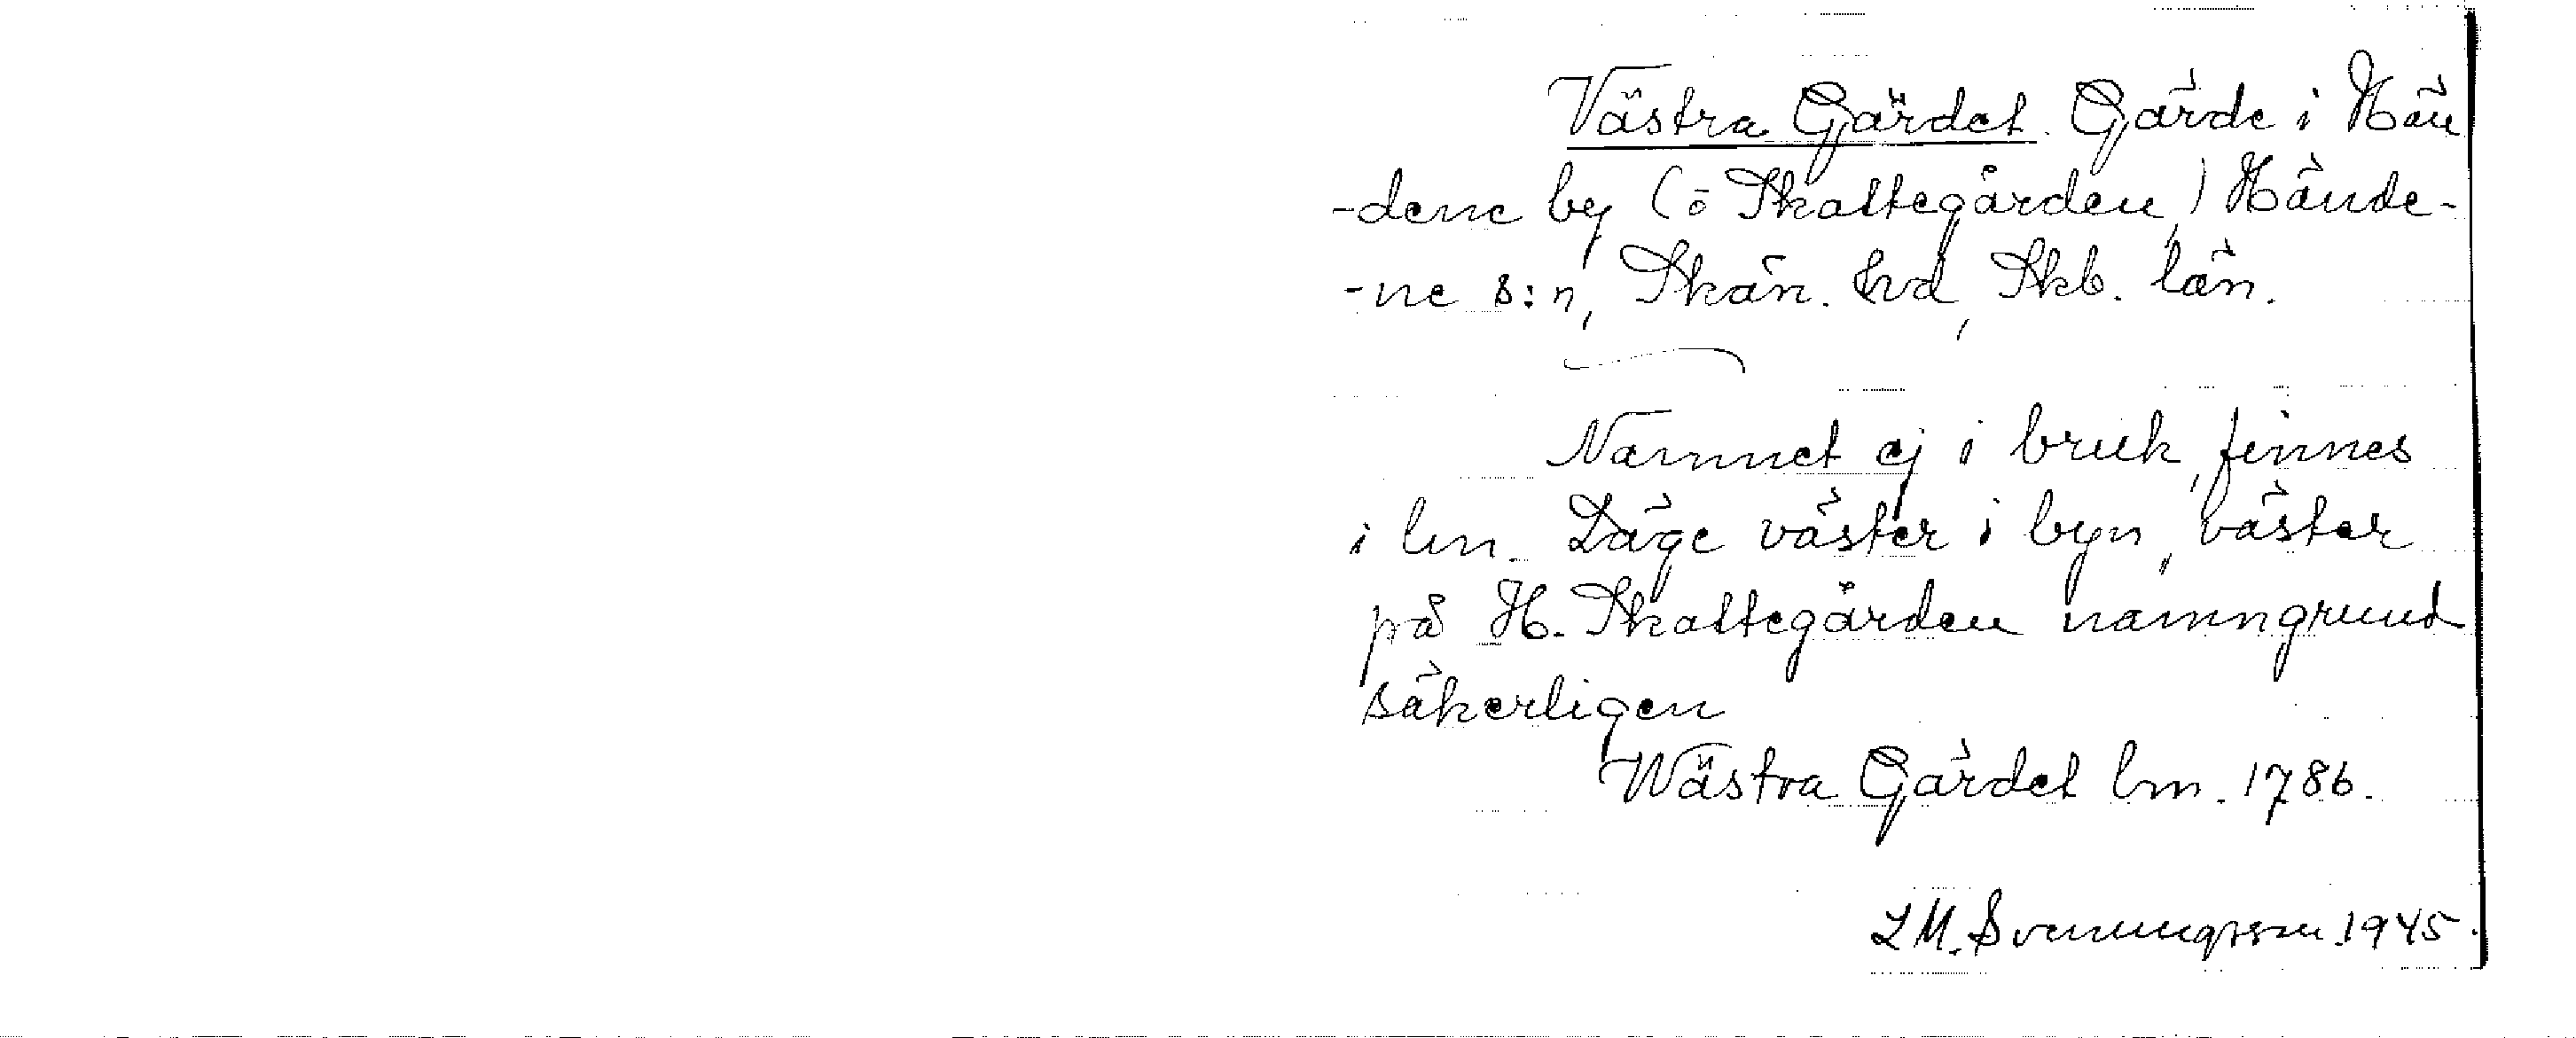 Västra Gärdet. Gärde i Hän
-dene by (ö Skattegården) Hände-
-ne s:n, Skän. hd, Skb. län.
Namnet ej i bruk, finnes
i lm. Läge väster i byn, väster
på H. Skattegården namngrund
säkerligen
Wästra Gärdet lm. 1786.
L M. Svenungsson 1945.